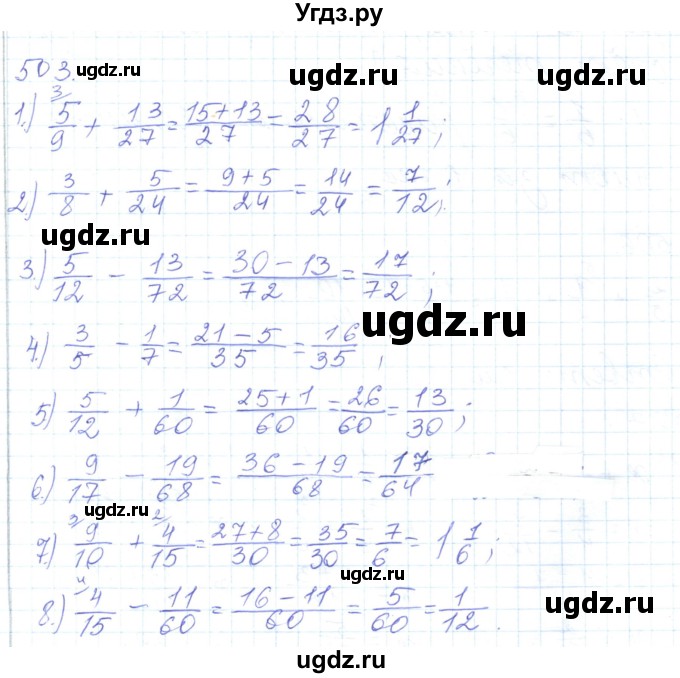 Угдз.ру
503. ugdz.ru ugdz.ru ugdz.ru
1.) 3/ 5/9 + 13/27 = (15+13)/27 = 28/27 = 1 1/27;
2.) 3/8 + 5/24 = (9+5)/24 = 14/24 = 7/12;
ugdz.ru ugdz.ru
3.) 5/12 - 13/72 = (30-13)/72 = 17/72;
ugdz.ru
4.) 3/5 - 1/7 = (21-5)/35 = 16/35;
ugdz.ru
5) 5/12 + 1/60 = (25+1)/60 = 26/60 = 13/30;
6.) 9/17 - 19/68 = (36-19)/68 = 17/64
ugdz.ru ugdz.ru
7.) 3/ 9/10 + 2/ 4/15 = (27+8)/30 = 35/30 = 7/6 = 1 1/6;
ugdz.ru
8.) 4/ 4/15 - 11/60 = (16-11)/60 = 5/60 = 1/12.
ugdz.ru
ugdz.ru